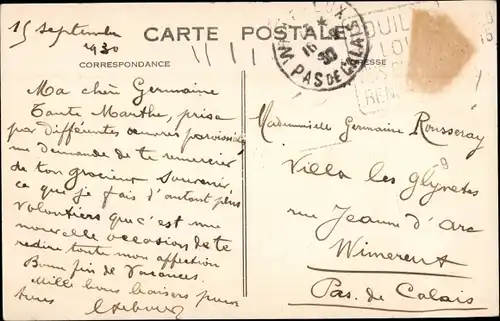 15 Septembre
1930
CARTE POSTALE
CORRESPONDANCE
PAS DE CALAIS
16
30
Ma chère Germaine
Tante Marthe, prise
par différentes œuvres paroissiales
me demande de te remercier
de ton gracieux souvenir,
ce que je fais d'autant plus
volontiers que c'est une
nouvelle occasion de te
redire toute mon affection
Bonne fin de vacances.
Mille bons baisers pour
tous
Mademoiselle Germaine Rousseray
Villa les glycines
rue Jeanne d'arc
Wimereux
Pas. de Calais